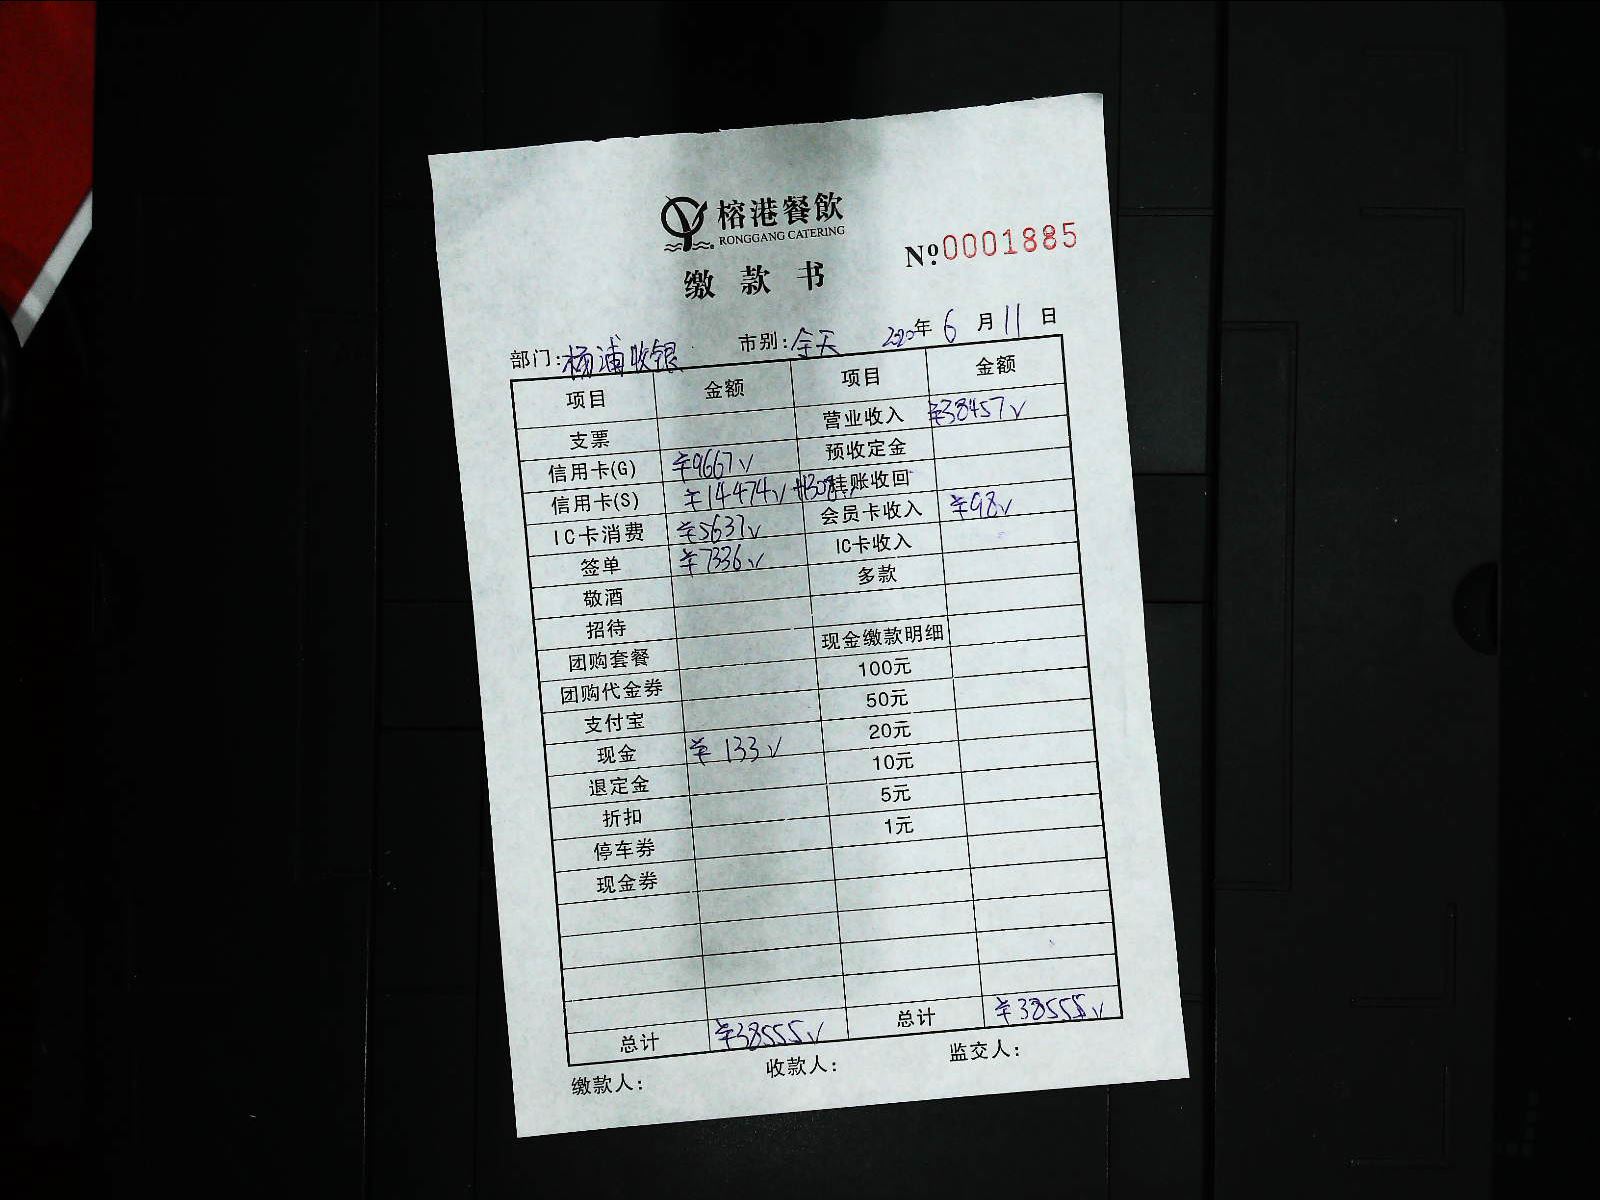 榕港餐飲
RONGGANG CATERING
№0001885
缴款书
部门:杨浦收银 市别:全天 2020年6月11日
项目 金额 项目 金额
支票 营业收入 ¥38457√
信用卡(G) ¥9667√ 预收定金
信用卡(S) ¥14474√ +1308√ 挂账收回
IC卡消费 ¥5637√ 会员卡收入 ¥98√
签单 ¥7336√ IC卡收入
敬酒 多款
招待
团购套餐 现金缴款明细
团购代金券 100元
支付宝 50元
现金 ¥133√ 20元
退定金 10元
折扣 5元
停车券 1元
现金券
总计 ¥38555√ 总计 ¥38555√
缴款人: 收款人: 监交人: